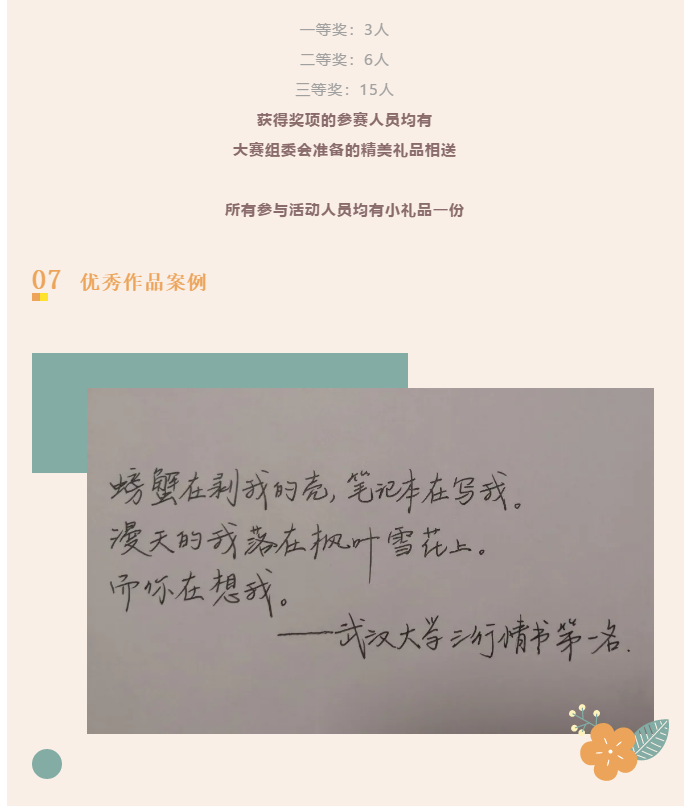 一等奖：3人
二等奖：6人
三等奖：15人
获得奖项的参赛人员均有
大赛组委会准备的精美礼品相送
所有参与活动人员均有小礼品一份
07 优秀作品案例
螃蟹在剥我的壳，笔记本在写我。
漫天的我落在枫叶雪花上。
而你在想我。
——武汉大学三行情书第一名.